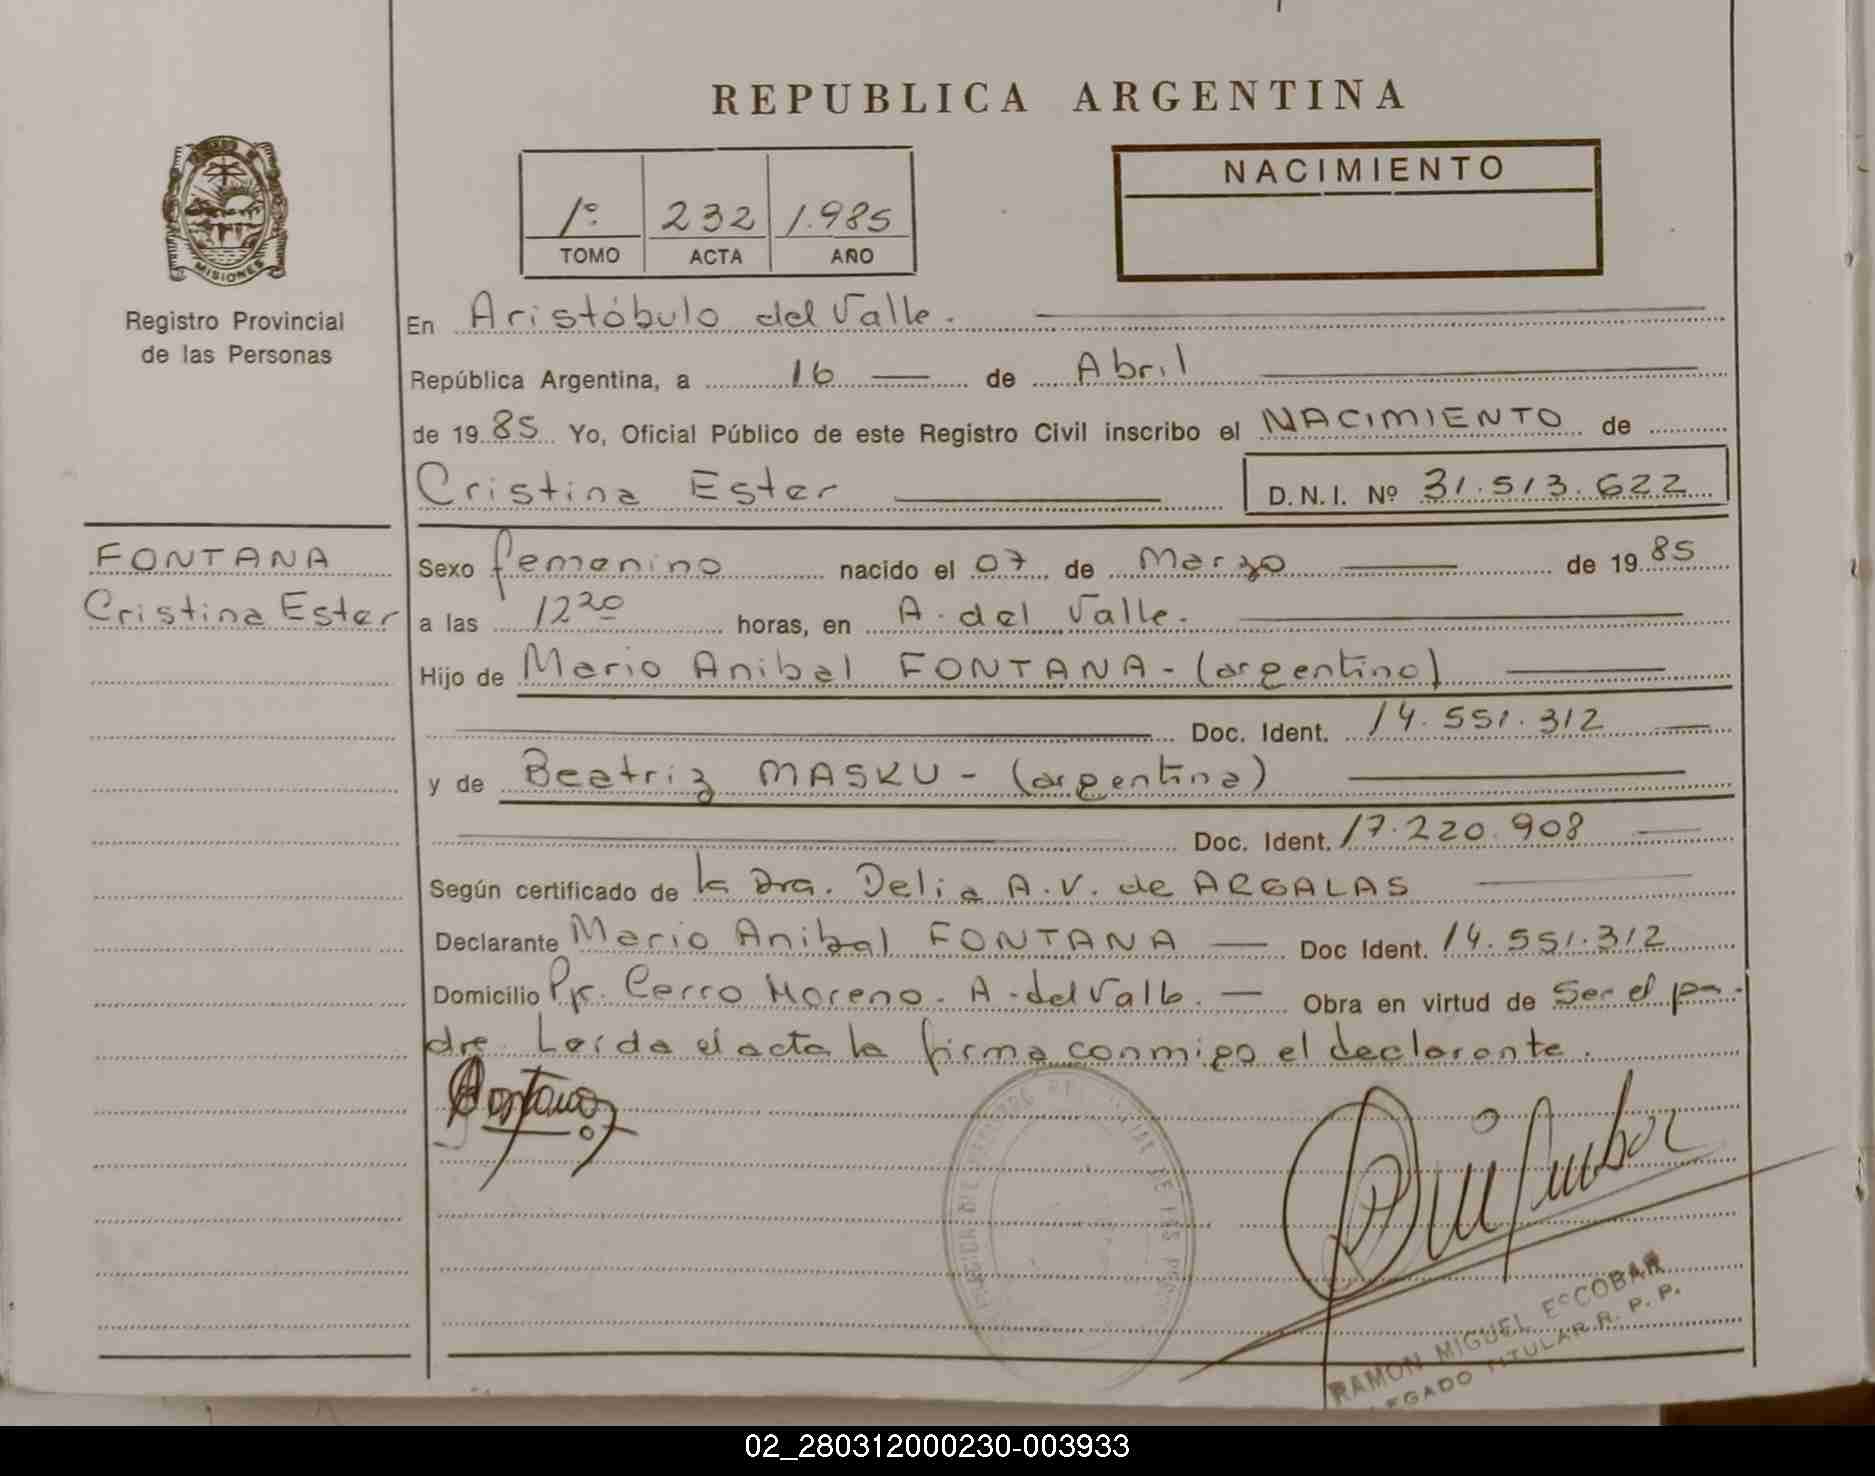 REPUBLICA ARGENTINA
NACIMIENTO
1º 232 1.985
TOMO ACTA AÑO
MISIONES
Registro Provincial
de las Personas
En Aristóbulo del Valle.
República Argentina, a 16 de Abril
de 1985 Yo, Oficial Público de este Registro Civil inscribo el NACIMIENTO de
Cristina Ester D.N.I. Nº 31.513.622
FONTANA
Cristina Ester
Sexo femenino nacido el 07 de Marzo de 1985
a las 12 20 horas, en A. del Valle.
Hijo de Mario Anibal FONTANA - (argentino)
Doc. Ident. 14.551.312
y de Beatriz MASKU - (argentina)
Doc. Ident. 17.220.908
Según certificado de la Dra. Delia A.V. de ARGALAS
Declarante Mario Anibal FONTANA Doc Ident. 14.551.312
Domicilio Pje. Cerro Moreno. A. del Valle. Obra en virtud de Ser el pa-
dre. Leída el acta la firma conmigo el declarante.
RAMON MIGUEL ESCOBAR
DELEGADO TITULAR R. P. P.
02_280312000230-003933